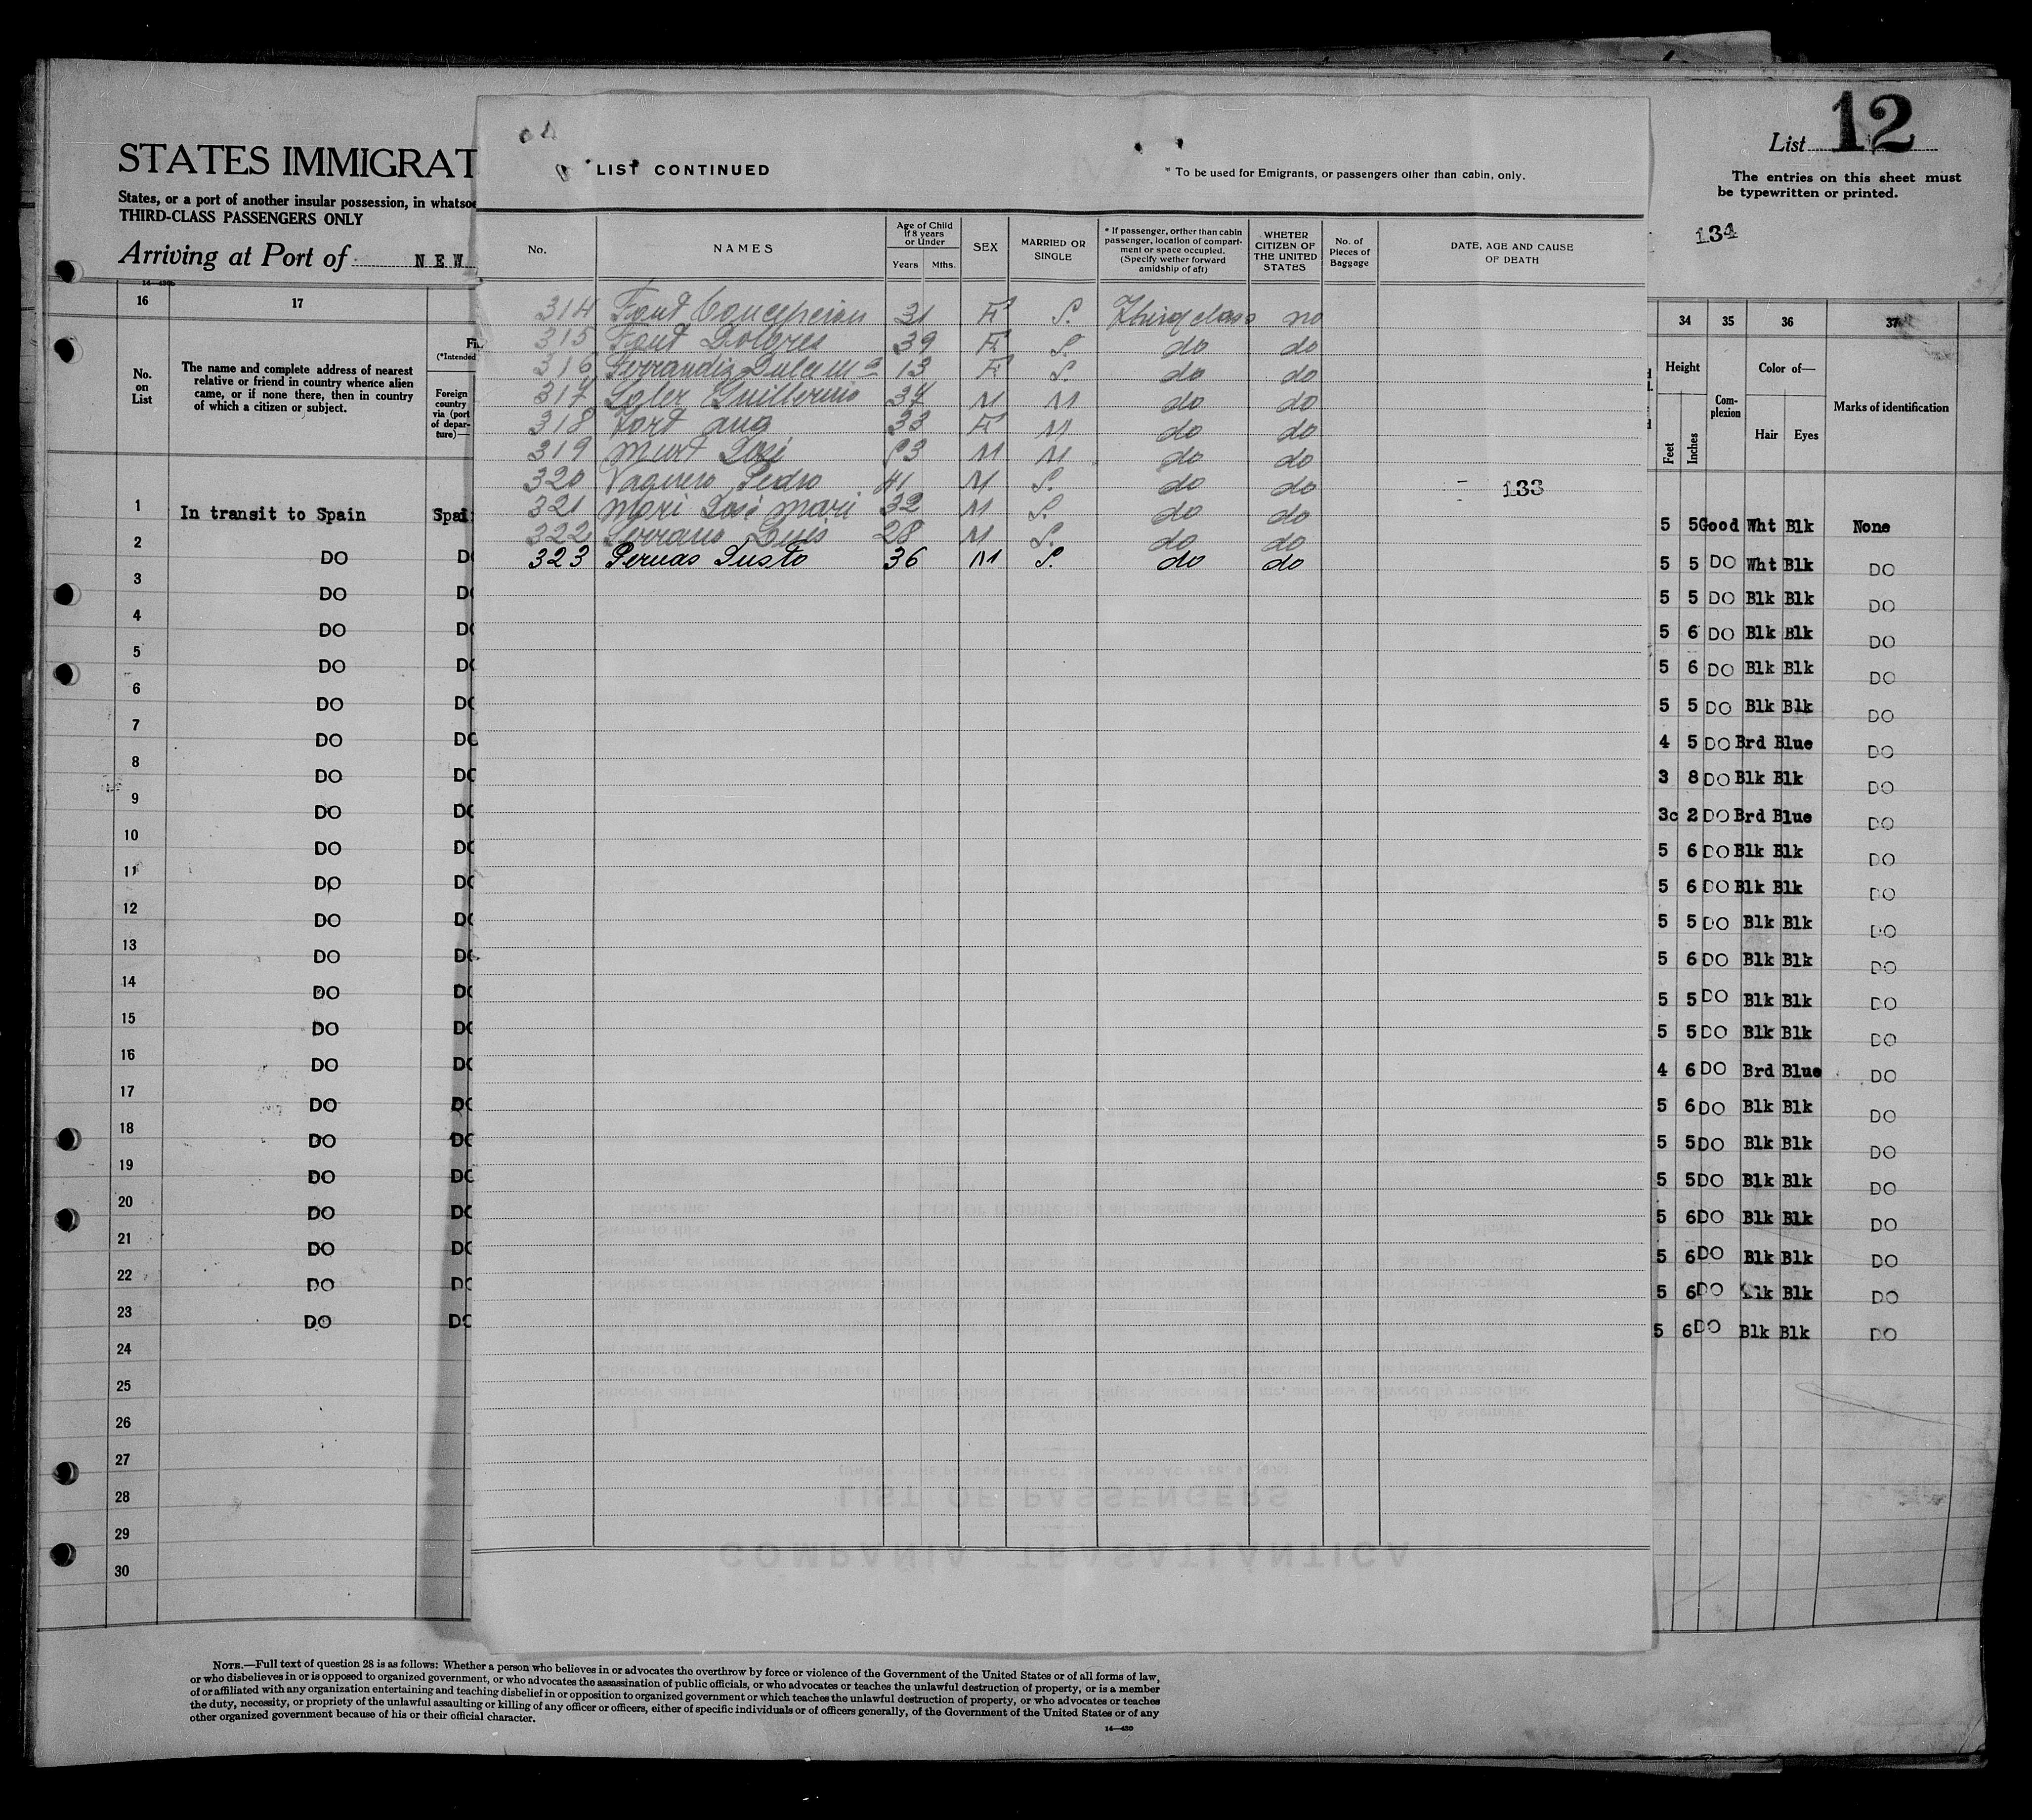 List 12
The entries on this sheet must
be typewritten or printed.
134
STATES IMMIGRAT
States, or a port of another insular possession, in whatsoe
THIRD-CLASS PASSENGERS ONLY
Arriving at Port of NEW
14—430b
16 17
No. on List
The name and complete address of nearest
relative or friend in country whence alien
came, or if none there, then in country
of which a citizen or subject.
(*Intended
Foreign
country
via (port
of depar-
ture)—
LIST CONTINUED
* To be used for Emigrants, or passengers other than cabin, only.
No. NAMES Age of Child If 8 years or Under Years Mths. SEX MARRIED OR SINGLE * If passenger, orther than cabin passenger, location of compart-ment or space occupied. (Specify wether forward amidship of aft) WHETER CITIZEN OF THE UNITED STATES No. of Pieces of Baggage DATE, AGE AND CAUSE OF DEATH
314 Font Concepcion 31 F S. Third class no
315 Font Dolores 39 F S. do do
316 Ferrandiz Dulce Mª 13 F S. do do
317 Soler Guillermo 37 M M do do
318 Fort Ana 33 F M do do
319 Munt José 53 M M do do
320 Vaquero Pedro 41 M S. do do
133
321 Mari José Mari 32 M S. do do
322 Serrano Luis 28 M S. do do
323 Pernas Justo 36 M S. do do
34 35 36 37
Height Feet Inches Com-plexion Color of— Hair Eyes Marks of identification
1 In transit to Spain Spai 5 5 Good Wht Blk None
2 DO DO 5 5 DO Wht Blk DO
3 DO DO 5 5 DO Blk Blk DO
4 DO DO 5 6 DO Blk Blk DO
5 DO DO 5 6 DO Blk Blk DO
6 DO DO 5 5 DO Blk Blk DO
7 DO DO 4 5 DO Brd Blue DO
8 DO DO 3 8 DO Blk Blk DO
9 DO DO 3c 2 DO Brd Blue DO
10 DO DO 5 6 DO Blk Blk DO
11 DO DO 5 6 DO Blk Blk DO
12 DO DO 5 5 DO Blk Blk DO
13 DO DO 5 6 DO Blk Blk DO
14 DO DO 5 5 DO Blk Blk DO
15 DO DO 5 5 DO Blk Blk DO
16 DO DO 4 6 DO Brd Blue DO
17 DO DO 5 6 DO Blk Blk DO
18 DO DO 5 5 DO Blk Blk DO
19 DO DO 5 5 DO Blk Blk DO
20 DO DO 5 6 DO Blk Blk DO
21 DO DO 5 6 DO Blk Blk DO
22 DO DO 5 6 DO Blk Blk DO
23 DO DO 5 6 DO Blk Blk DO
24
25
26
27
28
29
30
COMPAÑIA TRASATLANTICA
LIST OF PASSENGERS
NOTE.—Full text of question 28 is as follows: Whether a person who believes in or advocates the overthrow by force or violence of the Government of the United States or of all forms of law,
or who disbelieves in or is opposed to organized government, or who advocates the assassination of public officials, or who advocates or teaches the unlawful destruction of property, or is a member
of or affiliated with any organization entertaining and teaching disbelief in or opposition to organized government or which teaches the unlawful destruction of property, or who advocates or teaches
the duty, necessity, or propriety of the unlawful assaulting or killing of any officer or officers, either of specific individuals or of officers generally, of the Government of the United States or of any
other organized government because of his or their official character.
14—430